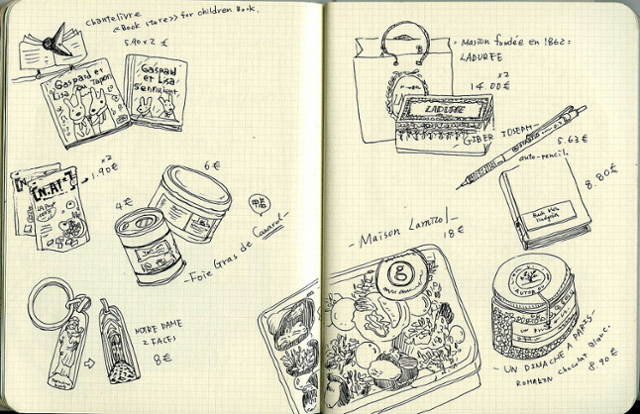 chantelivre
«Book store» for children Book.
5.90 x 2 €
Gaspard et
Lisa au Japon
Gaspard
et Lisa
s'ennuient.
[N.A!]
x2
1.90€
6 €
4€
鴨
-Foie Gras de Canard-
NOTRE DAME
2 FACES
8€
• MAISON fondée en 1862:
LADUREE
x2
14.00€
LADUREE
GIBER JOSEPH-
auto-pencil.
5.63 €
8.80€
- Maison Lamizol -
18 €
g
- UN DIMACHE A PARIS-
chocolat blanc.
8.90 €